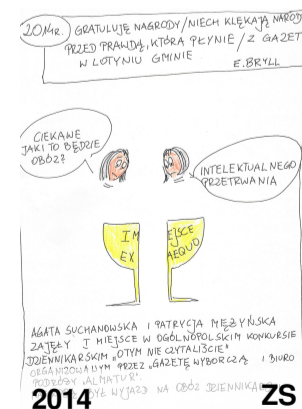 2014r.
GRATULUJĘ NAGRODY/NIECH KLĘKAJĄ NARODY
PRZED PRAWDĄ, KTÓRA PŁYNIE/Z GAZET
W LOTYNIU GMINIE
E.BRYLL
CIEKAWE
JAKI TO BĘDZIE
OBÓZ?
INTELEKTUALNEGO
PRZETRWANIA
I M EJSCE
EX AEQUO
AGATA SUCHANOWSKA I PATRYCJA MĘŻYŃSKA
ZAJĘŁY I MIEJSCE W OGÓLNOPOLSKIM KONKURSIE
DZIENNIKARSKIM "O TYM NIE CZYTALIŚCIE"
ORGANIZOWANYM PRZEZ "GAZETĘ WYBORCZĄ I BIURO
PODRÓŻY "ALMATUR".
BYŁ WYJAZD NA OBÓZ DZIENNIKARSKI
2014 ZS